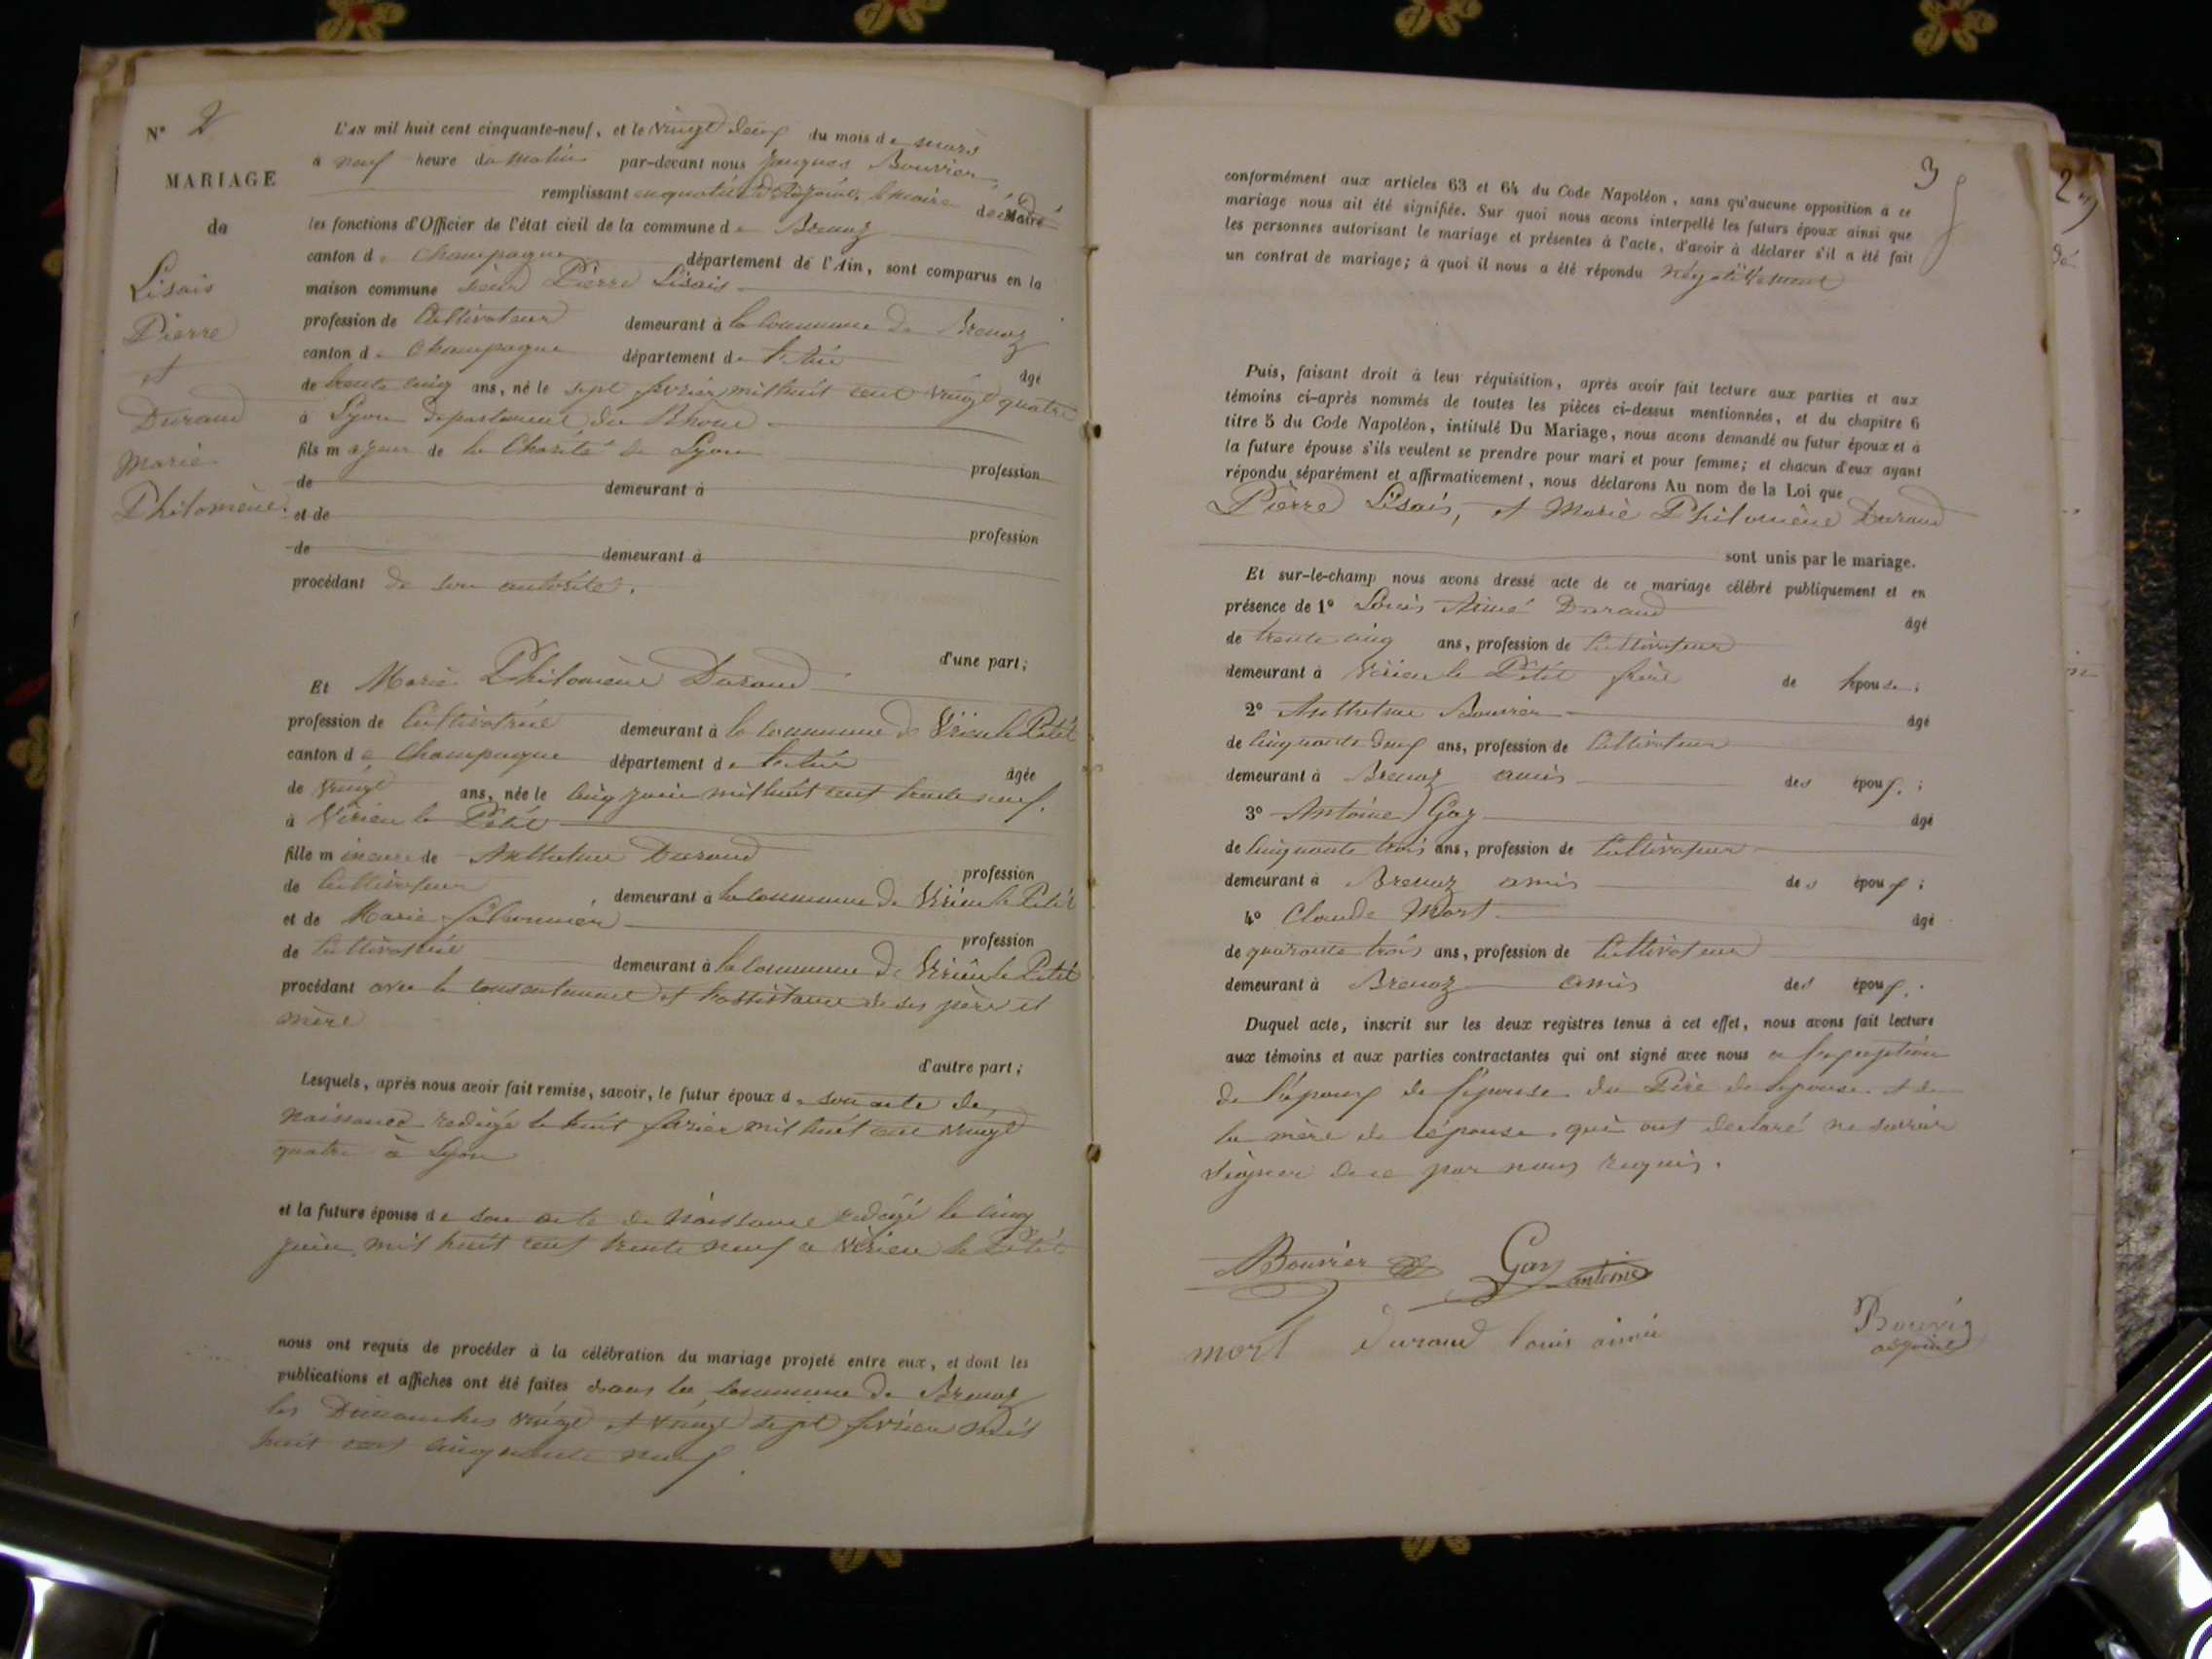 N° 2
MARIAGE
de
Lisais
Pierre
et
Durand
Marie
Philomène.
L'an mil huit cent cinquante-neuf, et le vingt deux du mois de mars
à neuf heure du matin par-devant nous Jacques Bouvier,
remplissant en qualité d'adjoint, le maire
Maire
les fonctions d'Officier de l'état civil de la commune de Brenaz
canton de Champagne département de l'Ain, sont comparus en la
maison commune sieur Pierre Lisais
profession de Cultivateur demeurant à la commune de Brenaz
canton de Champagne département de l'Ain âgé
de trente cinq ans, né le sept fevrier mil huit cent vingt quatre
à Lyon departement du Rhone
fils majeur de la Charité de Lyon profession
de demeurant à
et de profession
de demeurant à
procédant de son autorité.
d'une part;
Et Marie Philomène Durand
profession de Cultivatrice demeurant à la commune de Virieu le Petit
canton de Champagne département de l'Ain âgée
de vingt ans, née le cinq juin mil huit cent trente neuf.
à Virieu le Petit
fille mineure de Anthelme Durand profession
de Cultivateur demeurant à la commune de Virieu le Petit
et de Marie profession
de Cultivatrice demeurant à la commune de Virieu le Petit
procédant avec le consentement et l'assistance de ses père et
mère
d'autre part;
Lesquels, après nous avoir fait remise, savoir, le futur époux de son acte de
naissance redigé le huit fevrier mil huit cent vingt
quatre à Lyon
et la future épouse de son acte de naissance redigé le cinq
juin mil huit cent trente neuf a Virieu le Petit
nous ont requis de procéder à la célébration du mariage projeté entre eux, et dont les
publications et affiches ont été faites dans la commune de Brenaz
les Dimanches vingt et vingt sept fevrier mil
huit cent cinquante neuf.
3
conformément aux articles 63 et 64 du Code Napoléon, sans qu'aucune opposition à ce
mariage nous ait été signifiée. Sur quoi nous avons interpellé les futurs époux ainsi que
les personnes autorisant le mariage et présentes à l'acte, d'avoir à déclarer s'il a été fait
un contrat de mariage; à quoi il nous a été répondu négativement
Puis, faisant droit à leur réquisition, après avoir fait lecture aux parties et aux
témoins ci-après nommés de toutes les pièces ci-dessus mentionnées, et du chapitre 6
titre 5 du Code Napoléon, intitulé Du Mariage, nous avons demandé au futur époux et à
la future épouse s'ils veulent se prendre pour mari et pour femme; et chacun d'eux ayant
répondu séparément et affirmativement, nous déclarons Au nom de la Loi que
Pierre Lisais, et Marie Philomène Durand
sont unis par le mariage.
Et sur-le-champ nous avons dressé acte de ce mariage célébré publiquement et en
présence de 1° Louis Aimé Durand âgé
de trente cinq ans, profession de Cultivateur
demeurant à Virieu le Petit frère de l'épouse;
2° Anthelme Bouvier âgé
de cinquante deux ans, profession de Cultivateur
demeurant à Brenaz amis des époux;
3° Antoine Gay âgé
de cinquante trois ans, profession de Cultivateur
demeurant à Brenaz amis des époux;
4° Claude Mort âgé
de quarante trois ans, profession de Cultivateur
demeurant à Brenaz amis des époux.
Duquel acte, inscrit sur les deux registres tenus à cet effet, nous avons fait lecture
aux témoins et aux parties contractantes qui ont signé avec nous a l'exception
de l'époux de l'épouse du Père de l'épouse et de
la mère de l'épouse qui ont declaré ne savoir
signer de ce par nous requis.
ABouvier Gay antoine
mort durand louis aimé Bouvier
adjoint